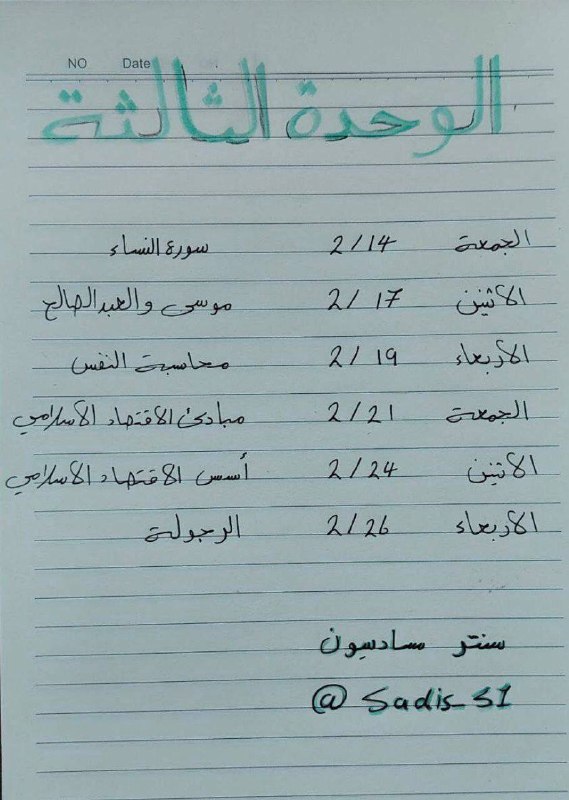 NO Date
الوحدة الثالثة
الجمعة 2/14 سورة النساء
الاثنين 2/17 موسى والعبد الصالح
الأربعاء 2/19 محاسبة النفس
الجمعة 2/21 مبادئ الاقتصاد الأسلامي
الاثنين 2/24 أسس الاقتصاد الأسلامي
الأربعاء 2/26 الرجولة
سنتر سادسيون
@Sadis_S1